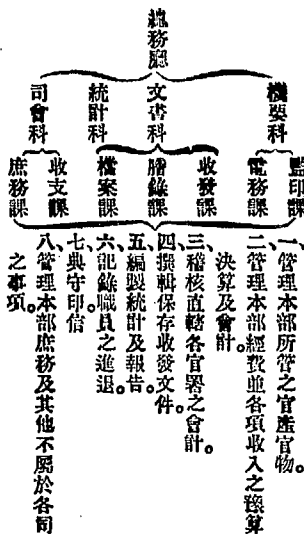 總務廳
機要科
文書科
統計科
司會科
監印課
電務課
收發課
謄錄課
檔案課
收支課
庶務課
一、管理本部所管之官產官物。
二、管理本部經費並各項收入之豫算
決算及會計。
三、稽核直轄各官署之會計。
四、撰輯保存收發文件。
五、編製統計及報告。
六、記錄職員之進退。
七、典守印信
八、管理本部庶務及其他不屬於各司
之事項。